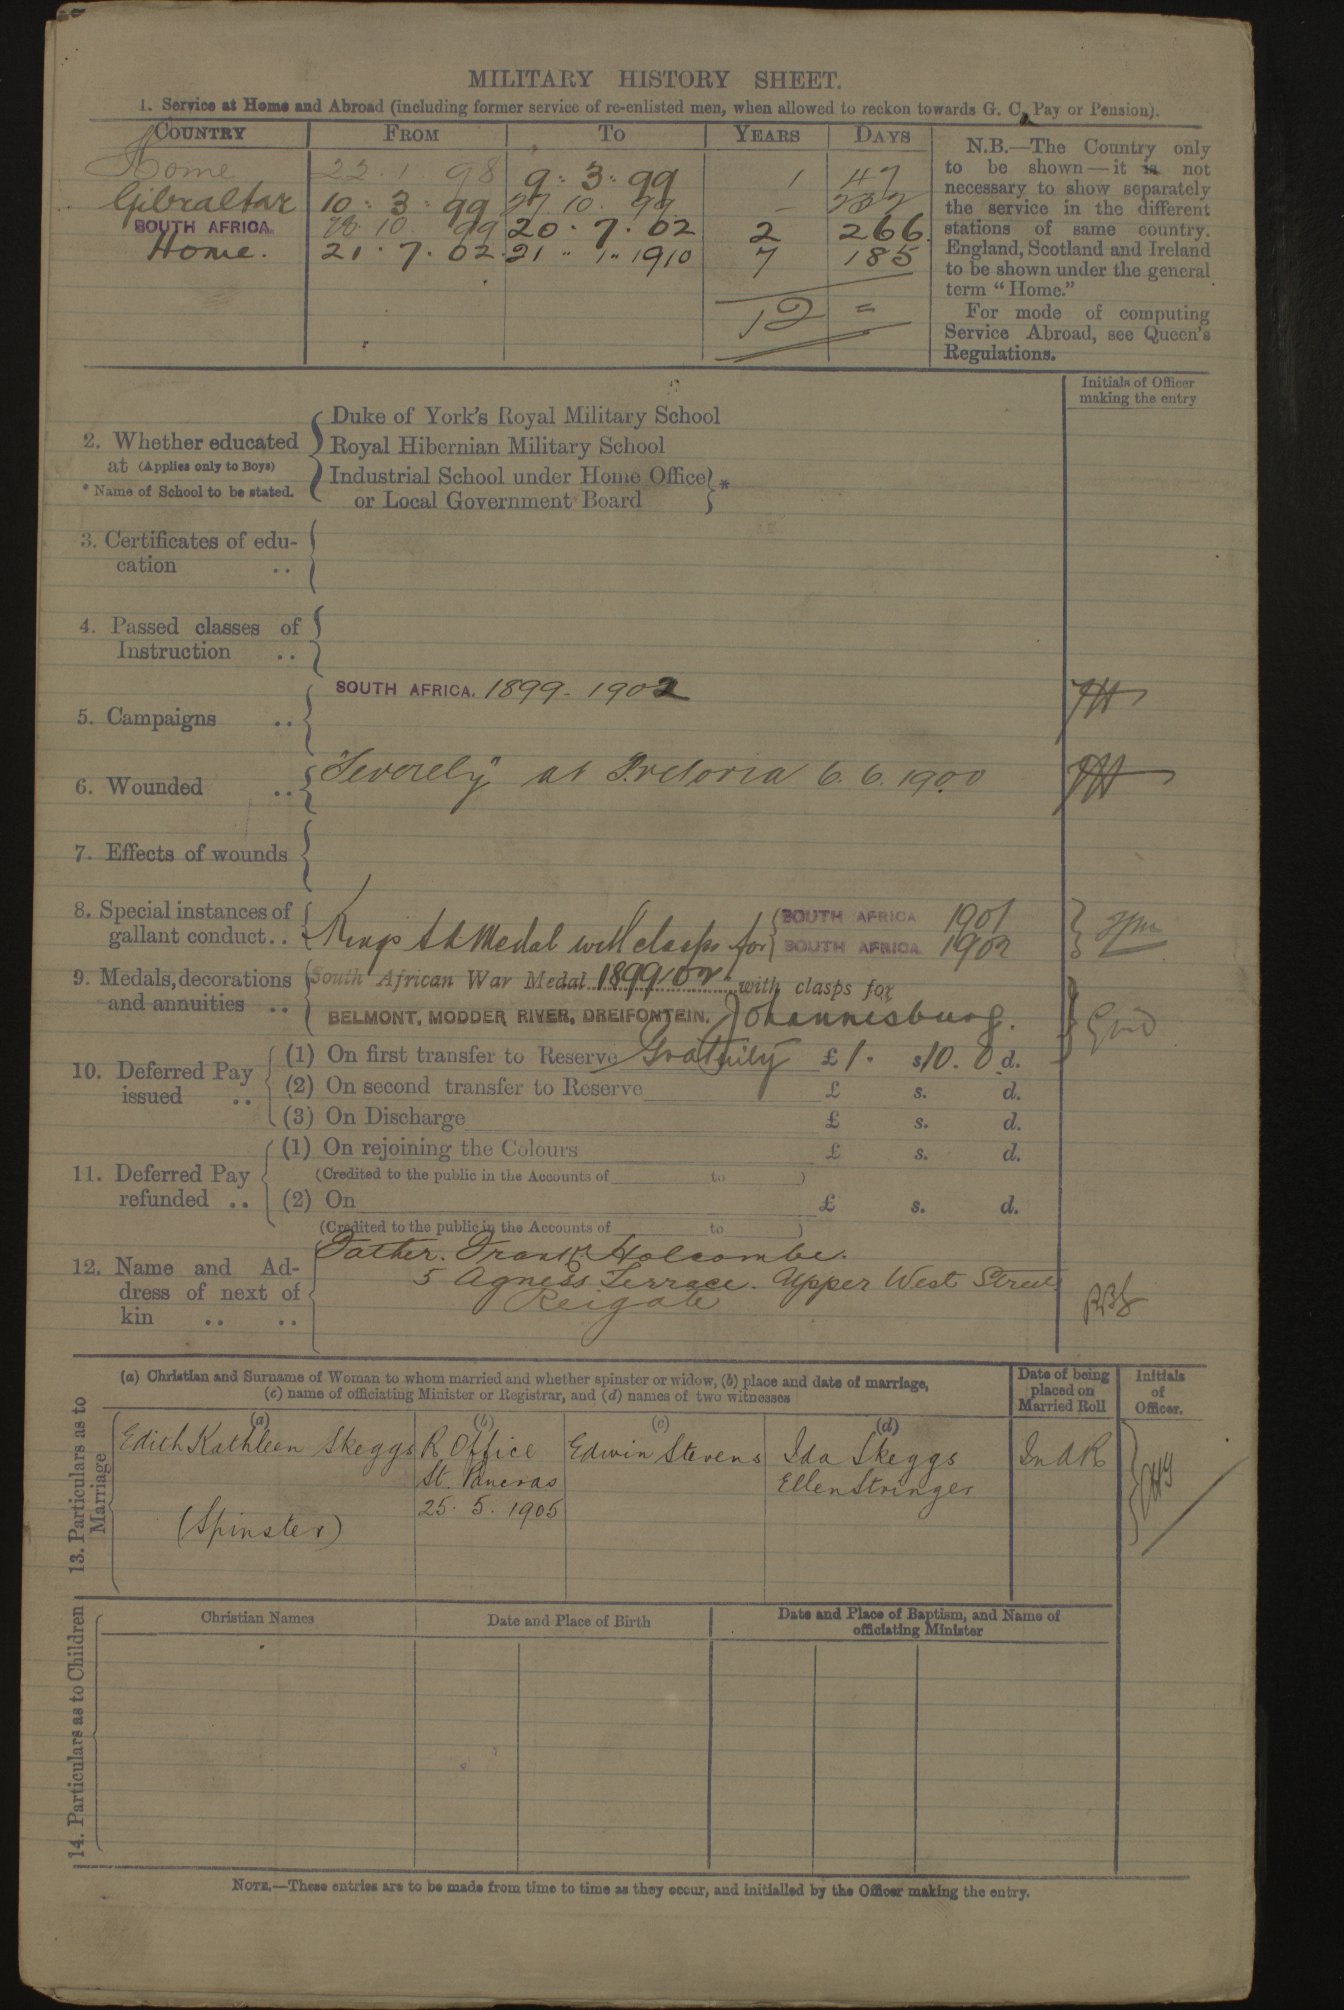 MILITARY HISTORY SHEET.
1. Service at Home and Abroad (including former service of re-enlisted men, when allowed to reckon towards G. C. Pay or Pension).
COUNTRY FROM TO YEARS DAYS
Home 22 1 98 9 . 3 . 99 1 47
Gibraltar 10 . 3 . 99 27 10 . 99 – 232
SOUTH AFRICA. 28. 10 99 20 . 7 . 02 2 266
Home. 21 . 7 . 02 21 .. 1 .. 1910 7 185
12 =
N.B.—The Country only
to be shown—it is not
necessary to show separately
the service in the different
stations of same country.
England, Scotland and Ireland
to be shown under the general
term “Home.”
For mode of computing
Service Abroad, see Queen's
Regulations.
Initials of Officer
making the entry
2. Whether educated
at (Applies only to Boys)
* Name of School to be stated.
Duke of York's Royal Military School
Royal Hibernian Military School
Industrial School under Home Office
or Local Government Board *
3. Certificates of edu-
cation ..
4. Passed classes of
Instruction ..
5. Campaigns .. SOUTH AFRICA. 1899 - 1902
6. Wounded .. "Severely" at Pretoria 6. 6. 1900
7. Effects of wounds
8. Special instances of
gallant conduct..
Kings SA Medal with clasps for SOUTH AFRICA 1901
SOUTH AFRICA 1902
9. Medals, decorations
and annuities ..
South African War Medal 1899/02 with clasps for
BELMONT, MODDER RIVER, DREIFONTEIN, Johannesburg.
10. Deferred Pay
issued ..
(1) On first transfer to Reserve Gratuity £ 1 . s. 10 . 0 d.
(2) On second transfer to Reserve £ s. d.
(3) On Discharge £ s. d.
11. Deferred Pay
refunded ..
(1) On rejoining the Colours £ s. d.
(Credited to the public in the Accounts of to )
(2) On £ s. d.
(Credited to the public in the Accounts of to )
12. Name and Ad-
dress of next of
kin .. ..
Father. Frank Holcombe.
5 Agness Terrace. Upper West Street
Reigate
13. Particulars as to
Marriage
(a) Christian and Surname of Woman to whom married and whether spinster or widow, (b) place and date of marriage,
(c) name of officiating Minister or Registrar, and (d) names of two witnesses
Date of being
placed on
Married Roll
Initials
of
Officer.
(a) (b) (c) (d)
Edith Kathleen Skeggs R Office Edwin Stevens Ida Skeggs In A R
St. Pancras Ellen Stringer
25. 5. 1905
(Spinster)
14. Particulars as to Children
Christian Names Date and Place of Birth
Date and Place of Baptism, and Name of
officiating Minister
NOTE.—These entries are to be made from time to time as they occur, and initialled by the Officer making the entry.